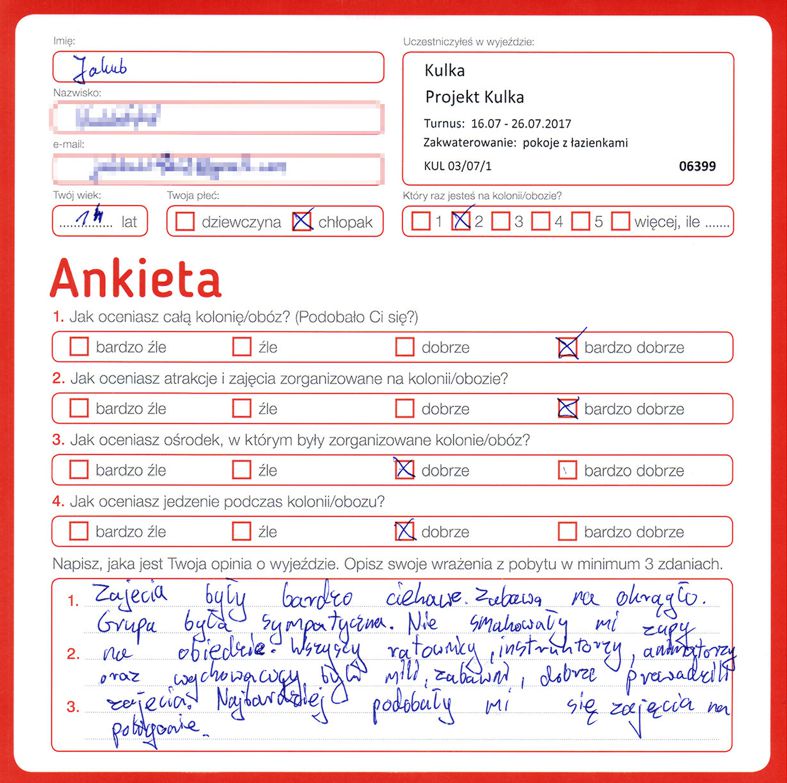 Imię:
Jakub
Nazwisko:
e-mail:
Twój wiek:
14 lat
Twoja płeć:
dziewczyna chłopak
Uczestniczyłeś w wyjeździe:
Kulka
Projekt Kulka
Turnus: 16.07 - 26.07.2017
Zakwaterowanie: pokoje z łazienkami
KUL 03/07/1 06399
Który raz jesteś na kolonii/obozie?
1 2 3 4 5 więcej, ile .......
Ankieta
1. Jak oceniasz całą kolonię/obóz? (Podobało Ci się?)
bardzo źle źle dobrze bardzo dobrze
2. Jak oceniasz atrakcje i zajęcia zorganizowane na kolonii/obozie?
bardzo źle źle dobrze bardzo dobrze
3. Jak oceniasz ośrodek, w którym były zorganizowane kolonie/obóz?
bardzo źle źle dobrze bardzo dobrze
4. Jak oceniasz jedzenie podczas kolonii/obozu?
bardzo źle źle dobrze bardzo dobrze
Napisz, jaka jest Twoja opinia o wyjeździe. Opisz swoje wrażenia z pobytu w minimum 3 zdaniach.
1. Zajęcia były bardzo ciekawe. Zabawa na okrągło.
Grupa była sympatyczna. Nie smakowały mi zupy
2. na obiedzie. Wszyscy ratownicy, instruktorzy, animatorzy
oraz wychowawcy byli mili, zabawni, dobrze prowadzili
3. zajęcia. Najbardziej podobały mi się zajęcia na
poligonie.